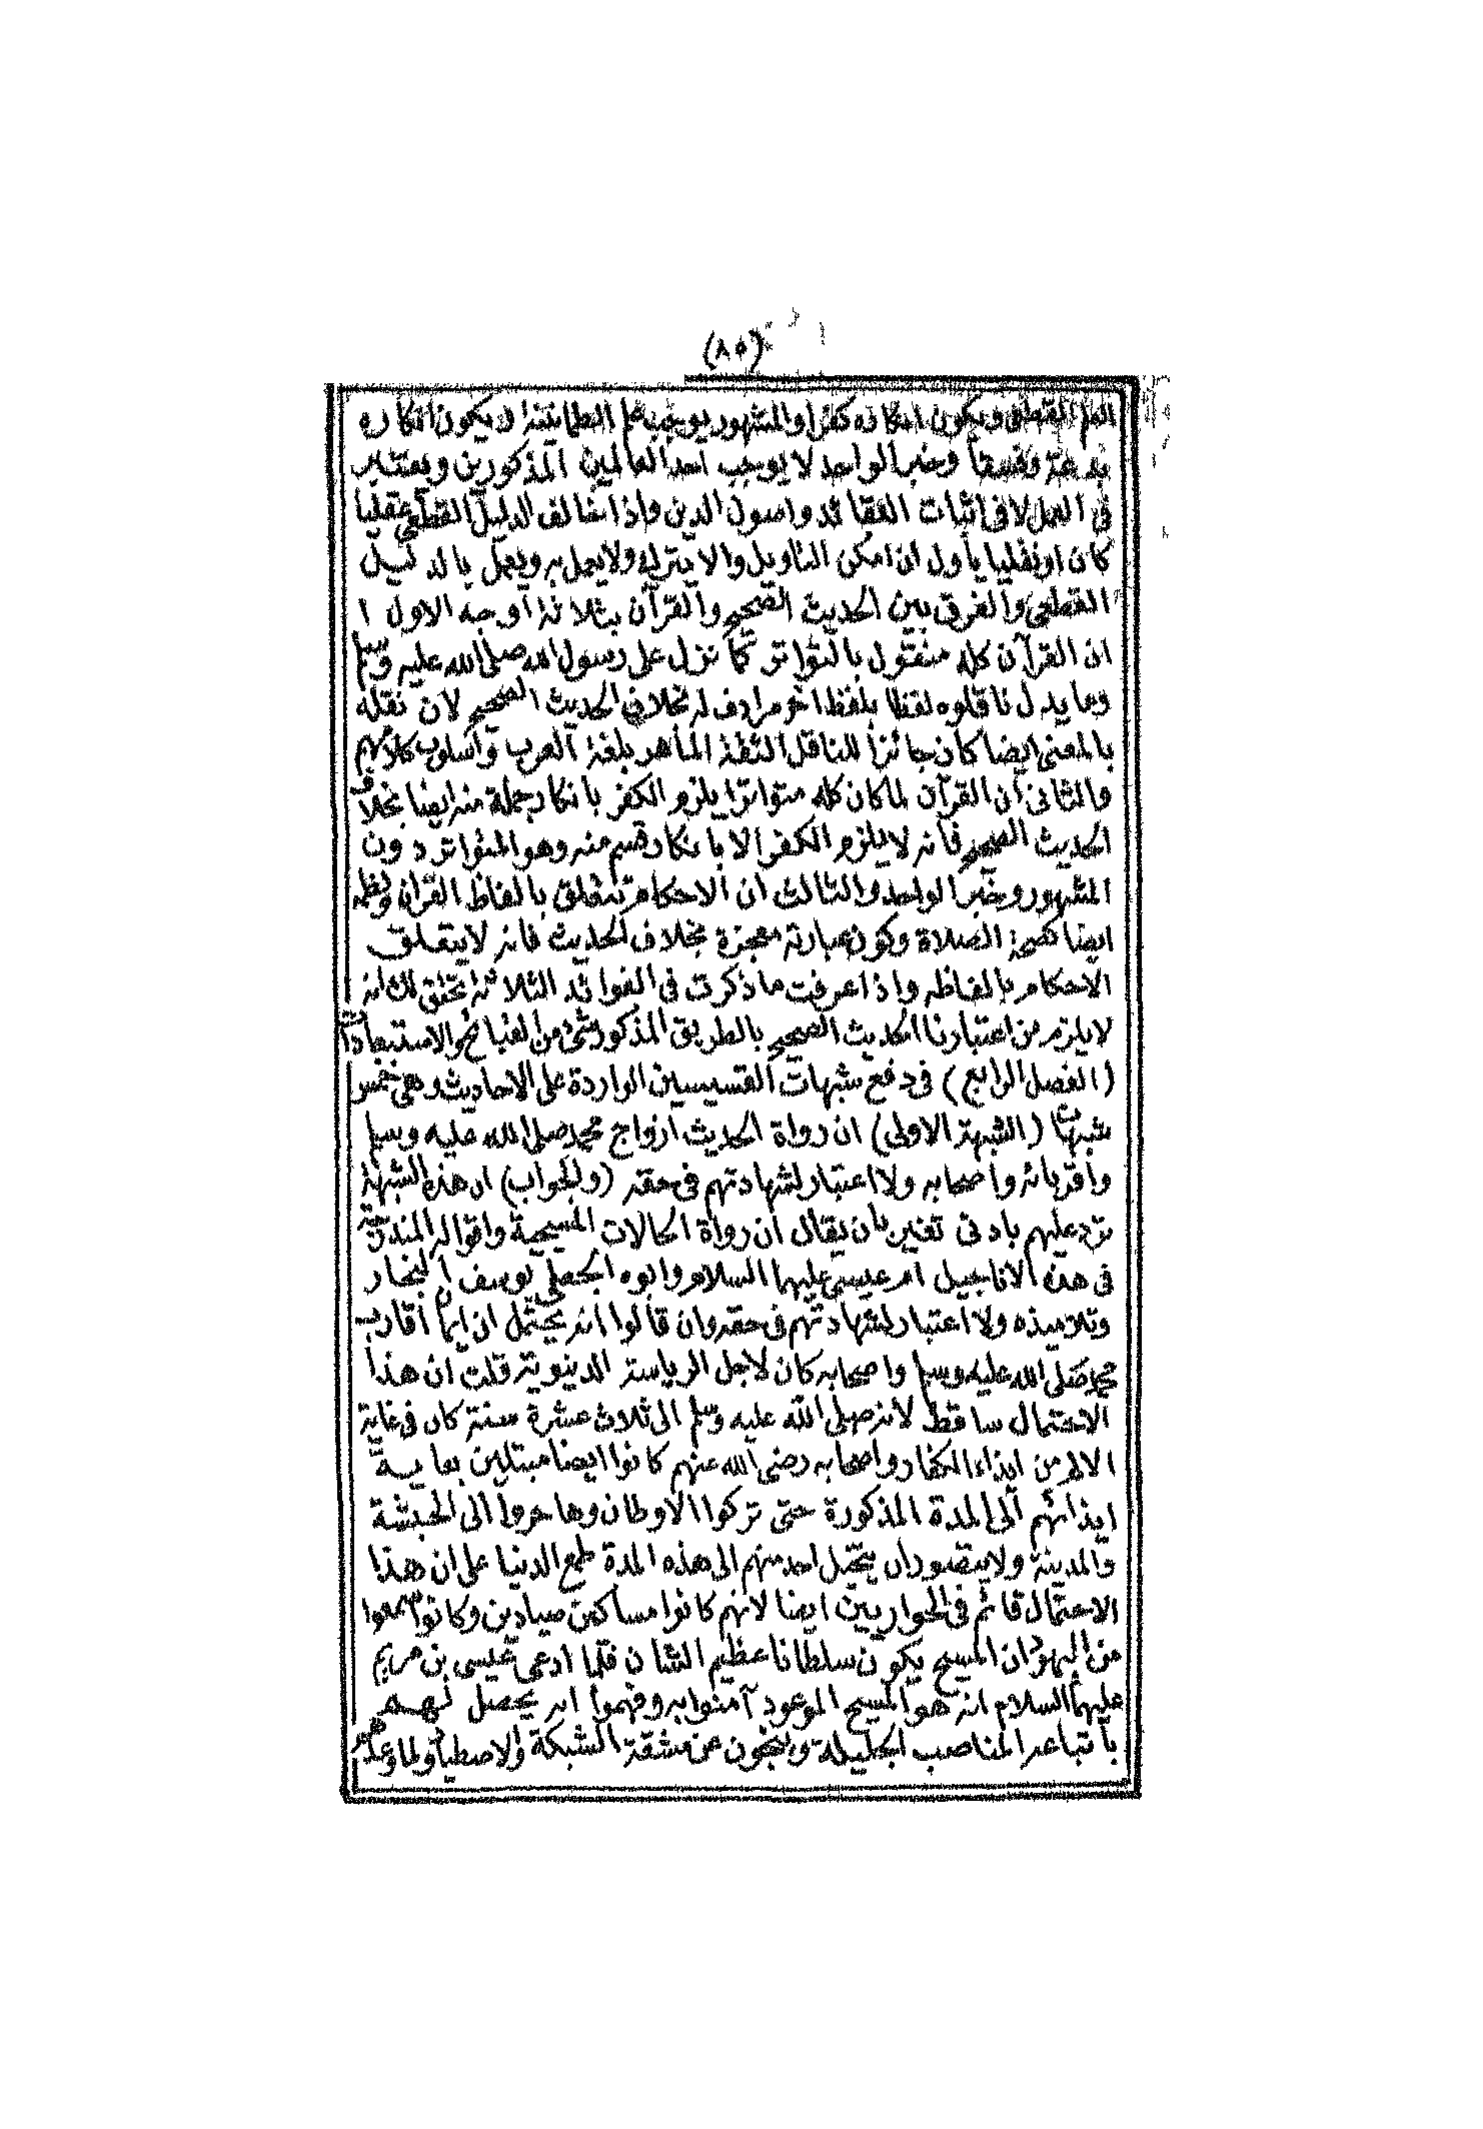 (٨٥)
العلم القطعى ويكون انكاره كفرا والمشهور يوجب علم الطمانينة ويكون انكاره
بدعة وفسقا وخبر الواحد لا يوجب احد العلمين المذكورين ويعتبر
فى العمل لا فى اثبات العقائد واصول الدين واذا خالف الدليل القطعى عقليا
كان او نقليا يأول ان امكن التاويل والا يترك ولا يعمل به ويعمل بالدليل
القطعى والفرق بين الحديث الصحيح والقرآن بثلاثة أوجه الاول ا
ان القرآن كله منقول بالتواتر كما نزل على رسول الله صلى الله عليه وسلم
وما بدل ناقلوه لفظا بلفظ اخر مرادف له بخلاف الحديث الصحيح لان نقله
بالمعنى ايضا كان جائزا للناقل الثقة الماهر بلغة العرب وأسلوب كلامهم
والثانى أن القرآن لما كان كله متواترا يلزم الكفر بانكار جملة منه ايضا بخلاف
الحديث الصحيح فانه لا يلزم الكفر الا بانكار قسم منه وهو المتواتر دون
المشهور وخبر الواحد والثالث ان الاحكام تتعلق بالفاظ القرآن ونظمه
ايضا كصحة الصلاة وكون عبارته معجزة بخلاف الحديث فانه لا يتعلق
الاحكام بالفاظه واذا عرفت ما ذكرت فى الفوائد الثلاثة تحقق لك انه
لا يلزم من اعتبارنا الحديث الصحيح بالطريق المذكور شئ من القبائح والاستبعادات
(الفصل الرابع) فى دفع شبهات القسيسين الواردة على الاحاديث وهى خمس
شبهات (الشبهة الاولى) ان رواة الحديث ازواج محمد صلى الله عليه وسلم
واقربائه واصحابه ولا اعتبار لشهادتهم فى حقه (والجواب) ان هذه الشبهة
ترد عليهم بادنى تغير بان يقال ان رواة الحالات المسيحية واقواله المندرجة
فى هذه الاناجيل ام عيسى عليهما السلام وابوه الجعلى يوسف النجار
وتلاميذه ولا اعتبار لشهادتهم فى حقه وان قالوا انه يحتمل ان ايمان أقارب
محمد صلى الله عليه وسلم واصحابه كان لاجل الرياسة الدينوية قلت ان هذا
الاحتمال ساقط لانه صلى الله عليه وسلم الى ثلاث عشرة سنة كان فى غاية
الالم من ايذاء الكفار واصحابه رضى الله عنهم كانوا ايضا مبتلين بغاية
ايذائهم الى المدة المذكورة حتى تركوا الاوطان وهاجروا الى الحبشة
والمدينة ولا يتصور ان يتخيل احد منهم الى هذه المدة طمع الدنيا على ان هذا
الاحتمال قائم فى الحواريين ايضا لانهم كانوا مساكين صيادين وكانوا سمعوا
من اليهود ان المسيح يكون سلطانا عظيم الشان فلما ادعى عيسى بن مريم
عليهما السلام انه هو المسيح الموعود آمنوا به وفهموا انه يحصل لهم
باتباعه المناصب الجليلة وينجون عن مشقة الشبكة والاصطياد ولما وعدهم